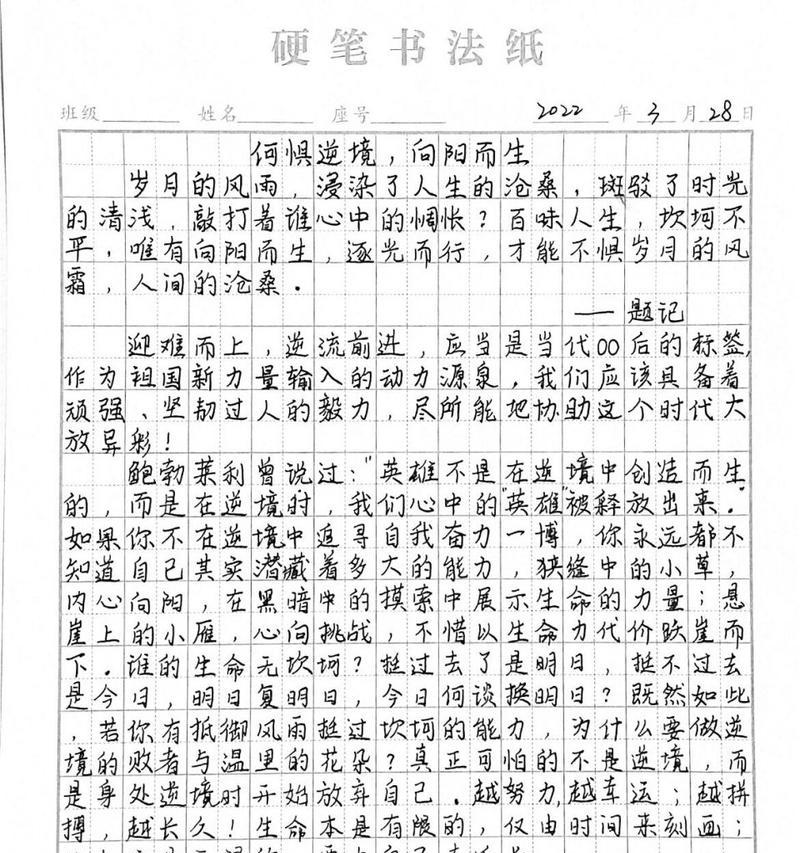 硬笔书法纸
班级 姓名 座号 2022 年 3 月 28 日
何惧逆境，向阳而生
岁月的风雨，浸染了人生的沧桑，斑驳了时光
的清浅，敲打着谁心中的惆怅？百味人生，坎坷不
平，唯有向阳而生，逐光而行，才能不惧岁月的风
霜，人间的沧桑．
——题记
迎难而上，逆流前进，应当是当代00后的标签，
作为祖国新力量输入的动力源泉，我们应该具备着
顽强、坚韧过人的毅力，尽所能地协助这个时代大
放异彩！
鲍勃莱利曾说过："英雄不是在逆境中创造而生
的，而是在逆境时，我们心中的"英雄"被释放出来．"
如果你不在逆境中追寻自我奋力一博，你永远都不
知道自己其实潜藏着多大的能力，狭缝中的小草，
内心向阳，在黑暗中的摸索中展示生命的力量；悬
崖上的小雁，心向挑战，不惜以生命力代价跃崖而
下．谁的生命无坎坷？挺过去了是明日，挺不过去
是今日，明日复明日，今日何谈换明日？既然如此
，若你有抵御风雨挺过坎坷的能力，为什么要做逆
境的败者与温里的花朵？真正可怕的不是逆境，而
是身处逆境时开始放弃自己．越努力，越幸运；越拼
搏，越长久！生命本是有限的，仅由时间来刻画；